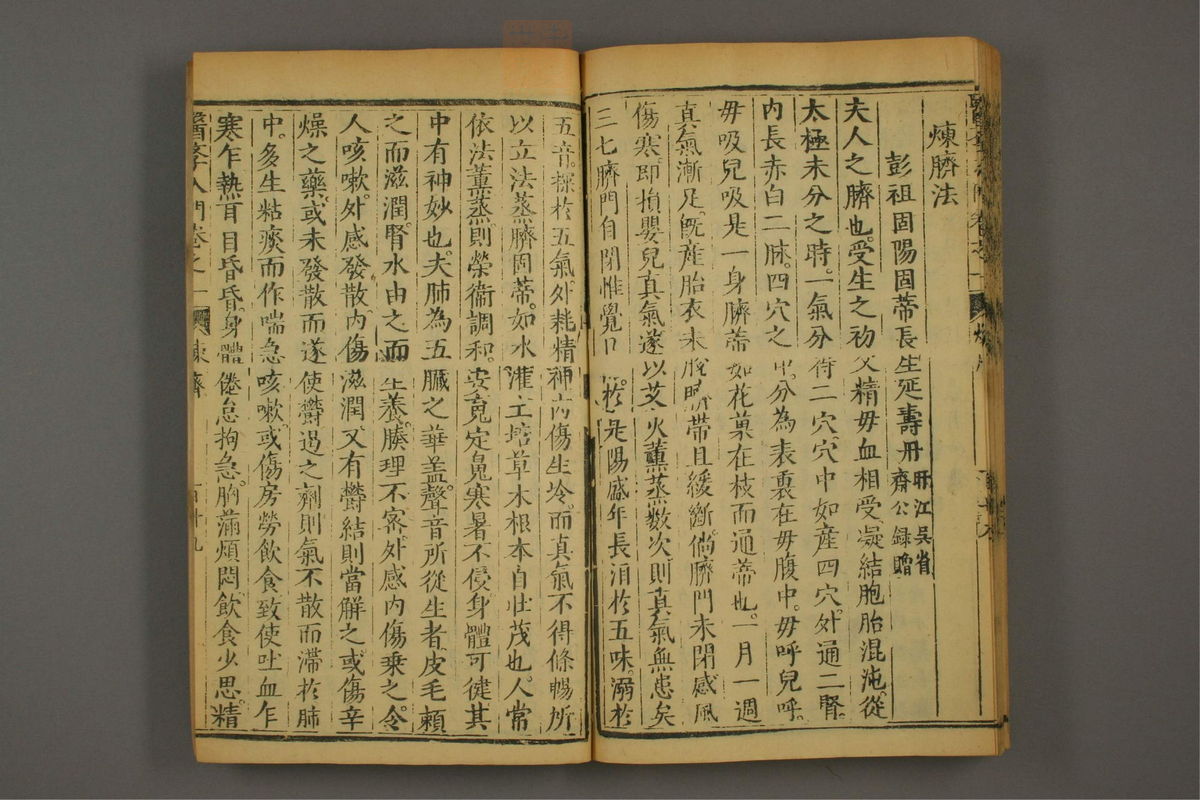 煉臍法
彭祖固陽固蒂長生延壽丹
旴江吳省
齋公録贈
夫人之臍也。受生之初父精毋血相受凝結胞胎混沌。從
太極未分之時。一氣分得二穴。穴中如産四穴。外通二腎。
内長赤白二脉。四穴之中。分為表裏在毋腹中。毋呼兒呼。
毋吸兒吸是一身臍蒂如花菓在枝而通蒂也。一月一週
真氣漸足。既産胎衣未脫臍帶且緩斷。倘臍門未閉感風
傷寒即損嬰兒真氣遂以艾火薰蒸數次則真氣無患矣
三七臍門自閉惟覺口於是陽盛年長汨於五味。溺於
五音。探於五氣。外耗精神内傷生冷。而真氣不得條暢所
以立法蒸臍固蒂。如水灌土培草木根本自壮茂也。人常
依法薰蒸則榮衞調和。安魂定魄寒暑不侵。身體可健其
中有神妙也。夫肺為五臟之華盖聲音所從生者皮毛頼
之而滋潤。腎水由之而生養。腠理不宻。外感内傷乗之。令
人咳嗽。外感發散。内傷滋潤又有鬱結則當解之。或傷辛
燥之藥。或未發散而遂使鬱遏之劑則氣不散而滯於肺
中。多生粘痰而作喘急咳嗽。或傷房勞飲食致使吐血乍
寒乍熱耳目昏昏。身體倦怠拘急。胸滿煩悶飲食少思。精
醫學入門卷之一 煉臍